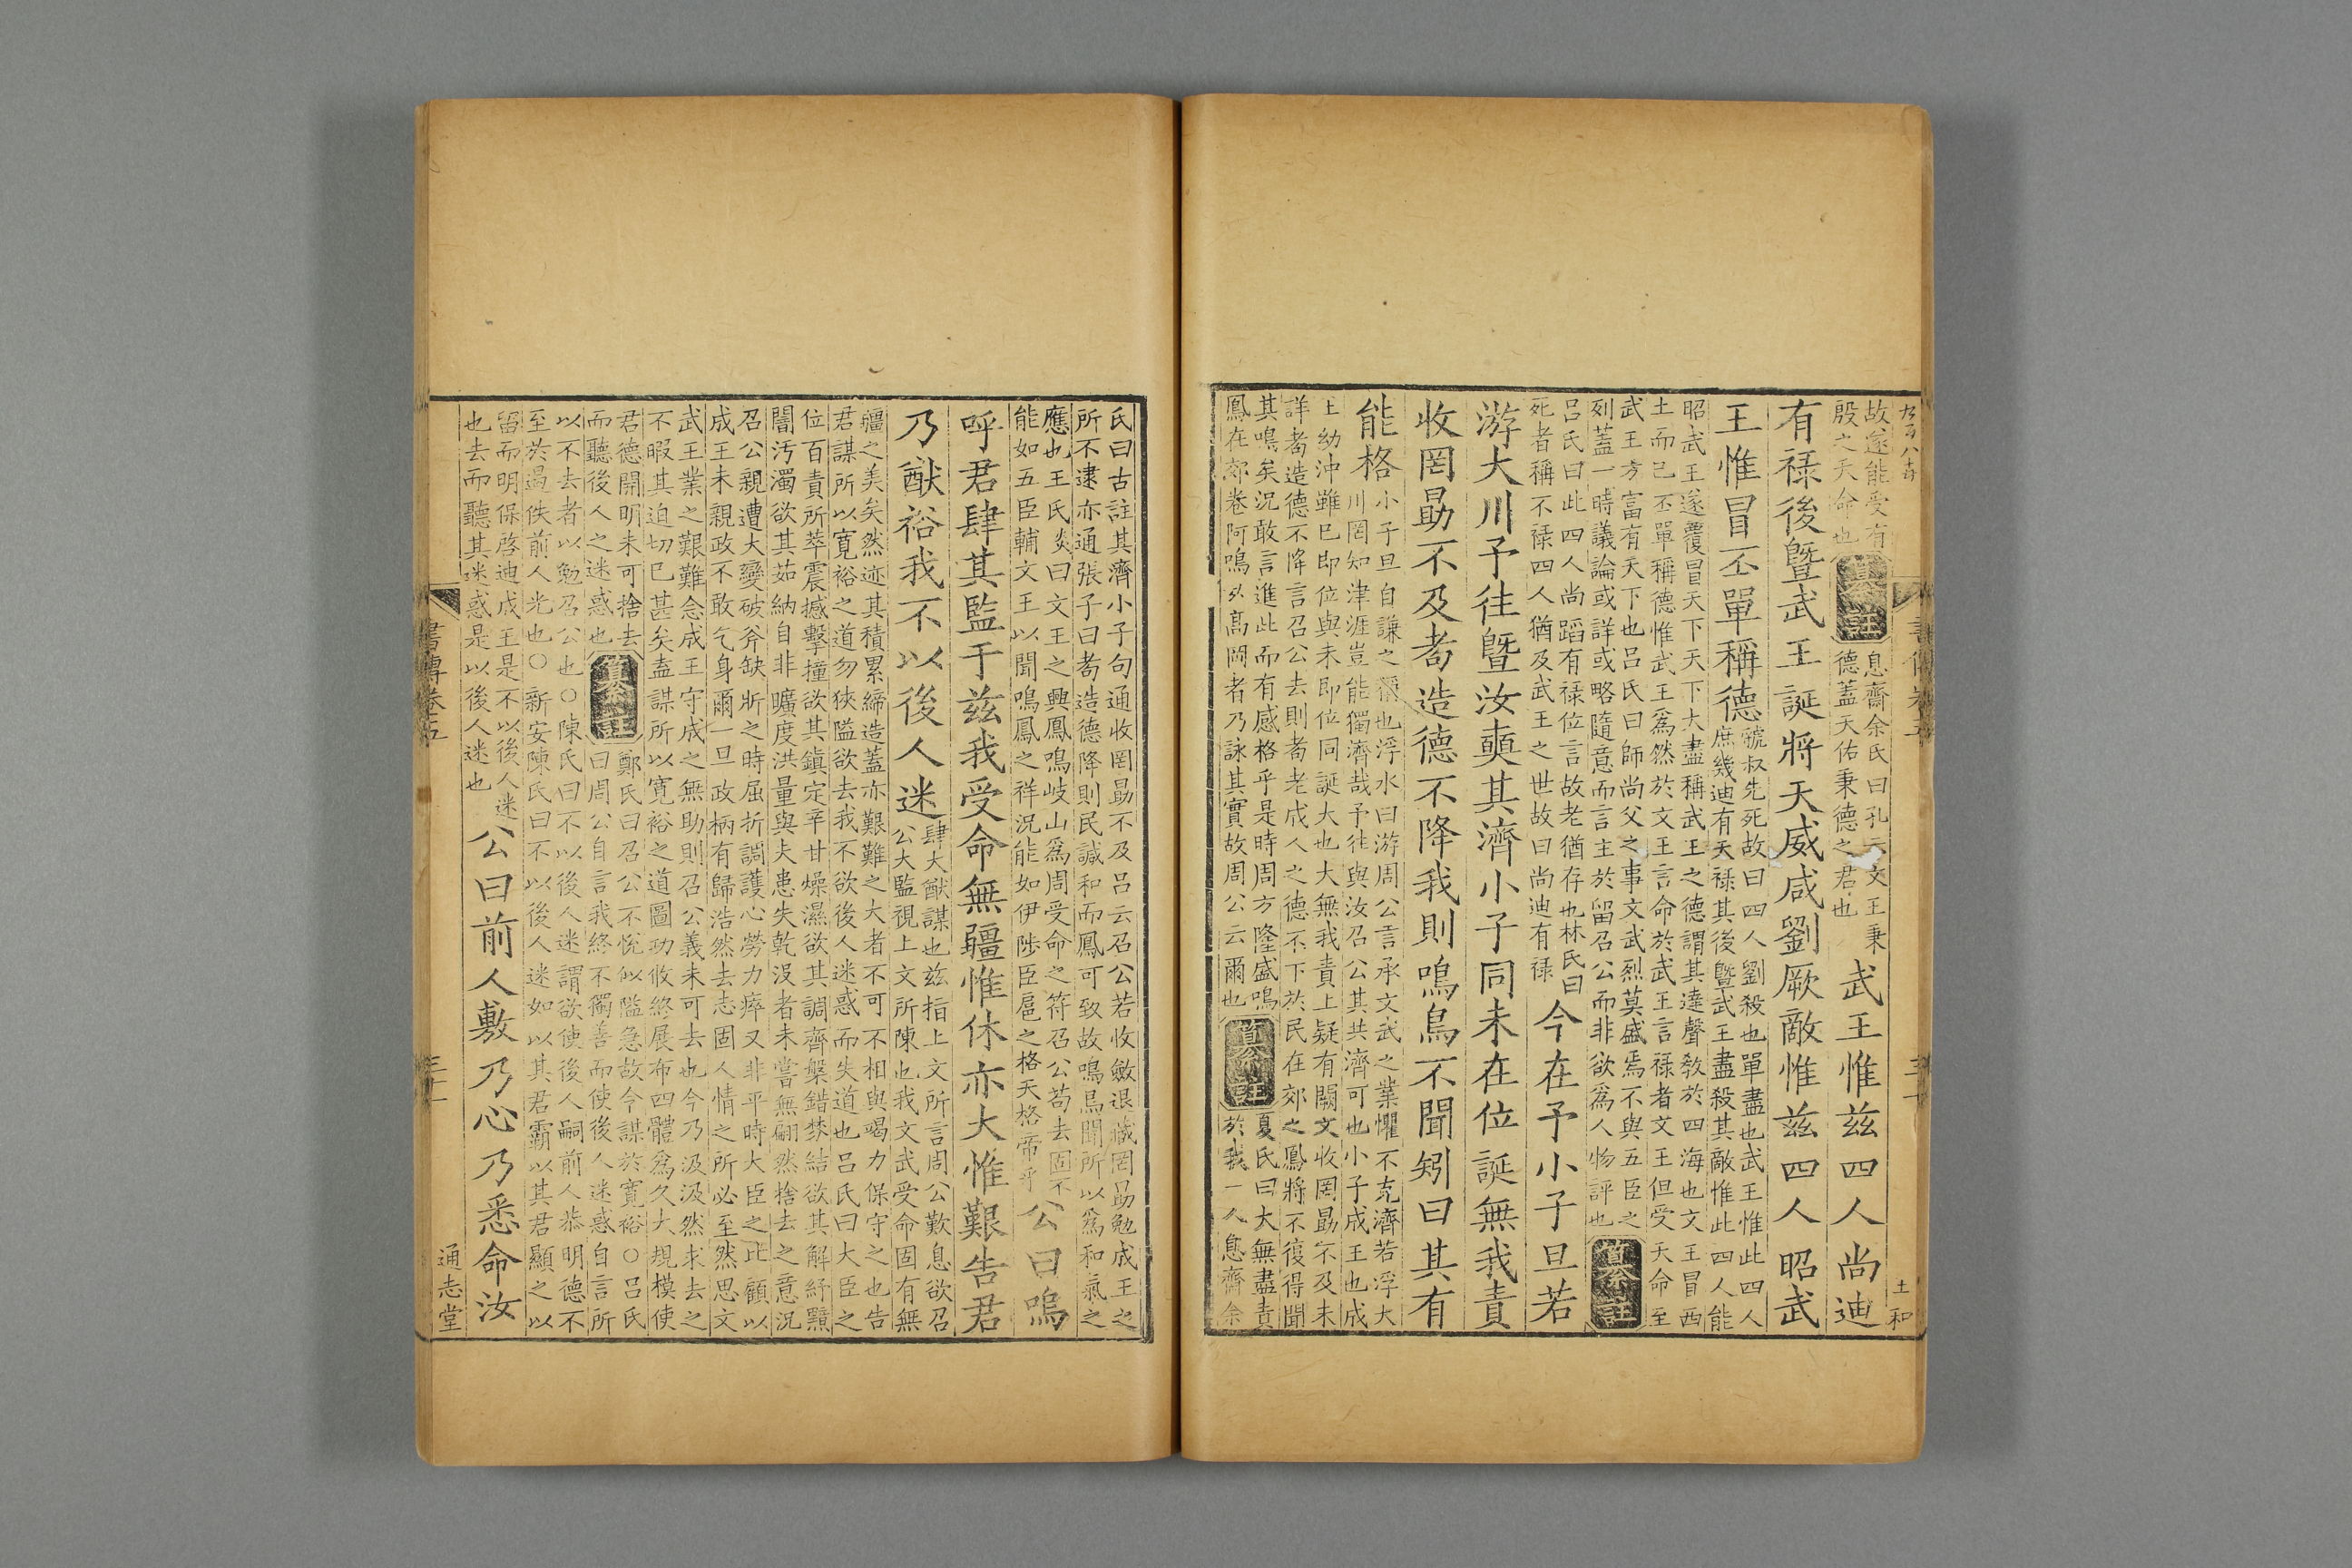 故遂能受有
殷之天命也
纂註
息齋余氏曰孔云文王秉
德蓋天佑秉德之君也
武王惟兹四人尚迪
有祿後曁武王誕將天威咸劉厥敵惟兹四人昭武
王惟冒丕單稱德
虢叔先死故曰四人劉殺也單盡也武王惟此四人
庶幾迪有天祿其後曁武王盡殺其敵惟此四人能
昭武王遂覆冒天下天下大盡稱武王之德謂其達聲敎於四海也文王冒西
土而已丕單稱德惟武王爲然於文王言命於武王言祿者文王但受天命至
武王方富有天下也呂氏曰師尚父之事文武烈莫盛焉不與五臣之
列蓋一時議論或詳或略隨意而言主於留召公而非欲爲人物評也
纂註
呂氏曰此四人尚蹈有祿位言故老猶存也林氏曰
死者稱不祿四人猶及武王之世故曰尚迪有祿
今在予小子旦若
游大川予往曁汝奭其濟小子同未在位誕無我責
收罔勗不及耇造德不降我則鳴鳥不聞矧曰其有
能格
小子旦自謙之稱也浮水曰游周公言承文武之業懼不克濟若浮大
川罔知津涯豈能獨濟哉予往與汝召公其共濟可也小子成王也成
王幼沖雖已即位與未即位同誕大也大無我責上疑有闕文收罔勗不及未
詳耇造德不降言召公去則耇老成人之德不下於民在郊之鳳將不復得聞
其鳴矣況敢言進此而有感格乎是時周方隆盛鳴
鳳在郊卷阿鳴于高岡者乃詠其實故周公云爾也
纂註
夏氏曰大無盡責
於我一人息齋余
氏曰古註其濟小子句通收罔勗不及呂云召公若收斂退藏罔勗勉成王之
所不逮亦通張子曰耇造德降則民諴和而鳳可致故鳴鳥聞所以爲和氣之
應也王氏炎曰文王之興鳳鳴岐山爲周受命之符召公苟去固不
能如五臣輔文王以聞鳴鳳之祥況能如伊陟臣扈之格天格帝乎
公曰嗚
呼君肆其監于兹我受命無疆惟休亦大惟艱告君
乃猷裕我不以後人迷
肆大猷謀也兹指上文所言周公歎息欲召
公大監視上文所陳也我文武受命固有無
疆之美矣然迹其積累締造蓋亦艱難之大者不可不相與竭力保守之也告
君謀所以寛裕之道勿狹隘欲去我不欲後人迷惑而失道也呂氏曰大臣之
位百責所萃震撼擊撞欲其鎭定辛甘燥濕欲其調齊槃錯棼結欲其解紓黯
闇汚濁欲其茹納自非曠度洪量與夫患失乾沒者未嘗無翩然捨去之意況
召公親遭大變破斧缺斨之時屈折調護心勞力瘁又非平時大臣之比顧以
成王未親政不敢乞身爾一旦政柄有歸浩然去志固人情之所必至然思文
武王業之艱難念成王守成之無助則召公義未可去也今乃汲汲然求去之
不暇其迫切已甚矣盍謀所以寛裕之道圖功攸終展布四體爲久大規模使
君德開明未可捨去
而聽後人之迷惑也
纂註
鄭氏曰召公不悅似隘急故令謀於寛裕○呂氏
曰周公自言我終不獨善而使後人迷惑自言所
以不去者以勉召公也○陳氏曰不以後人迷謂欲使後人嗣前人恭明德不
至於遏佚前人光也○新安陳氏曰不以後人迷如以其君霸以其君顯之以
留而明保啓迪成王是不以後人迷
也去而聽其迷惑是以後人迷也
公曰前人敷乃心乃悉命汝
書傳卷五
通志堂